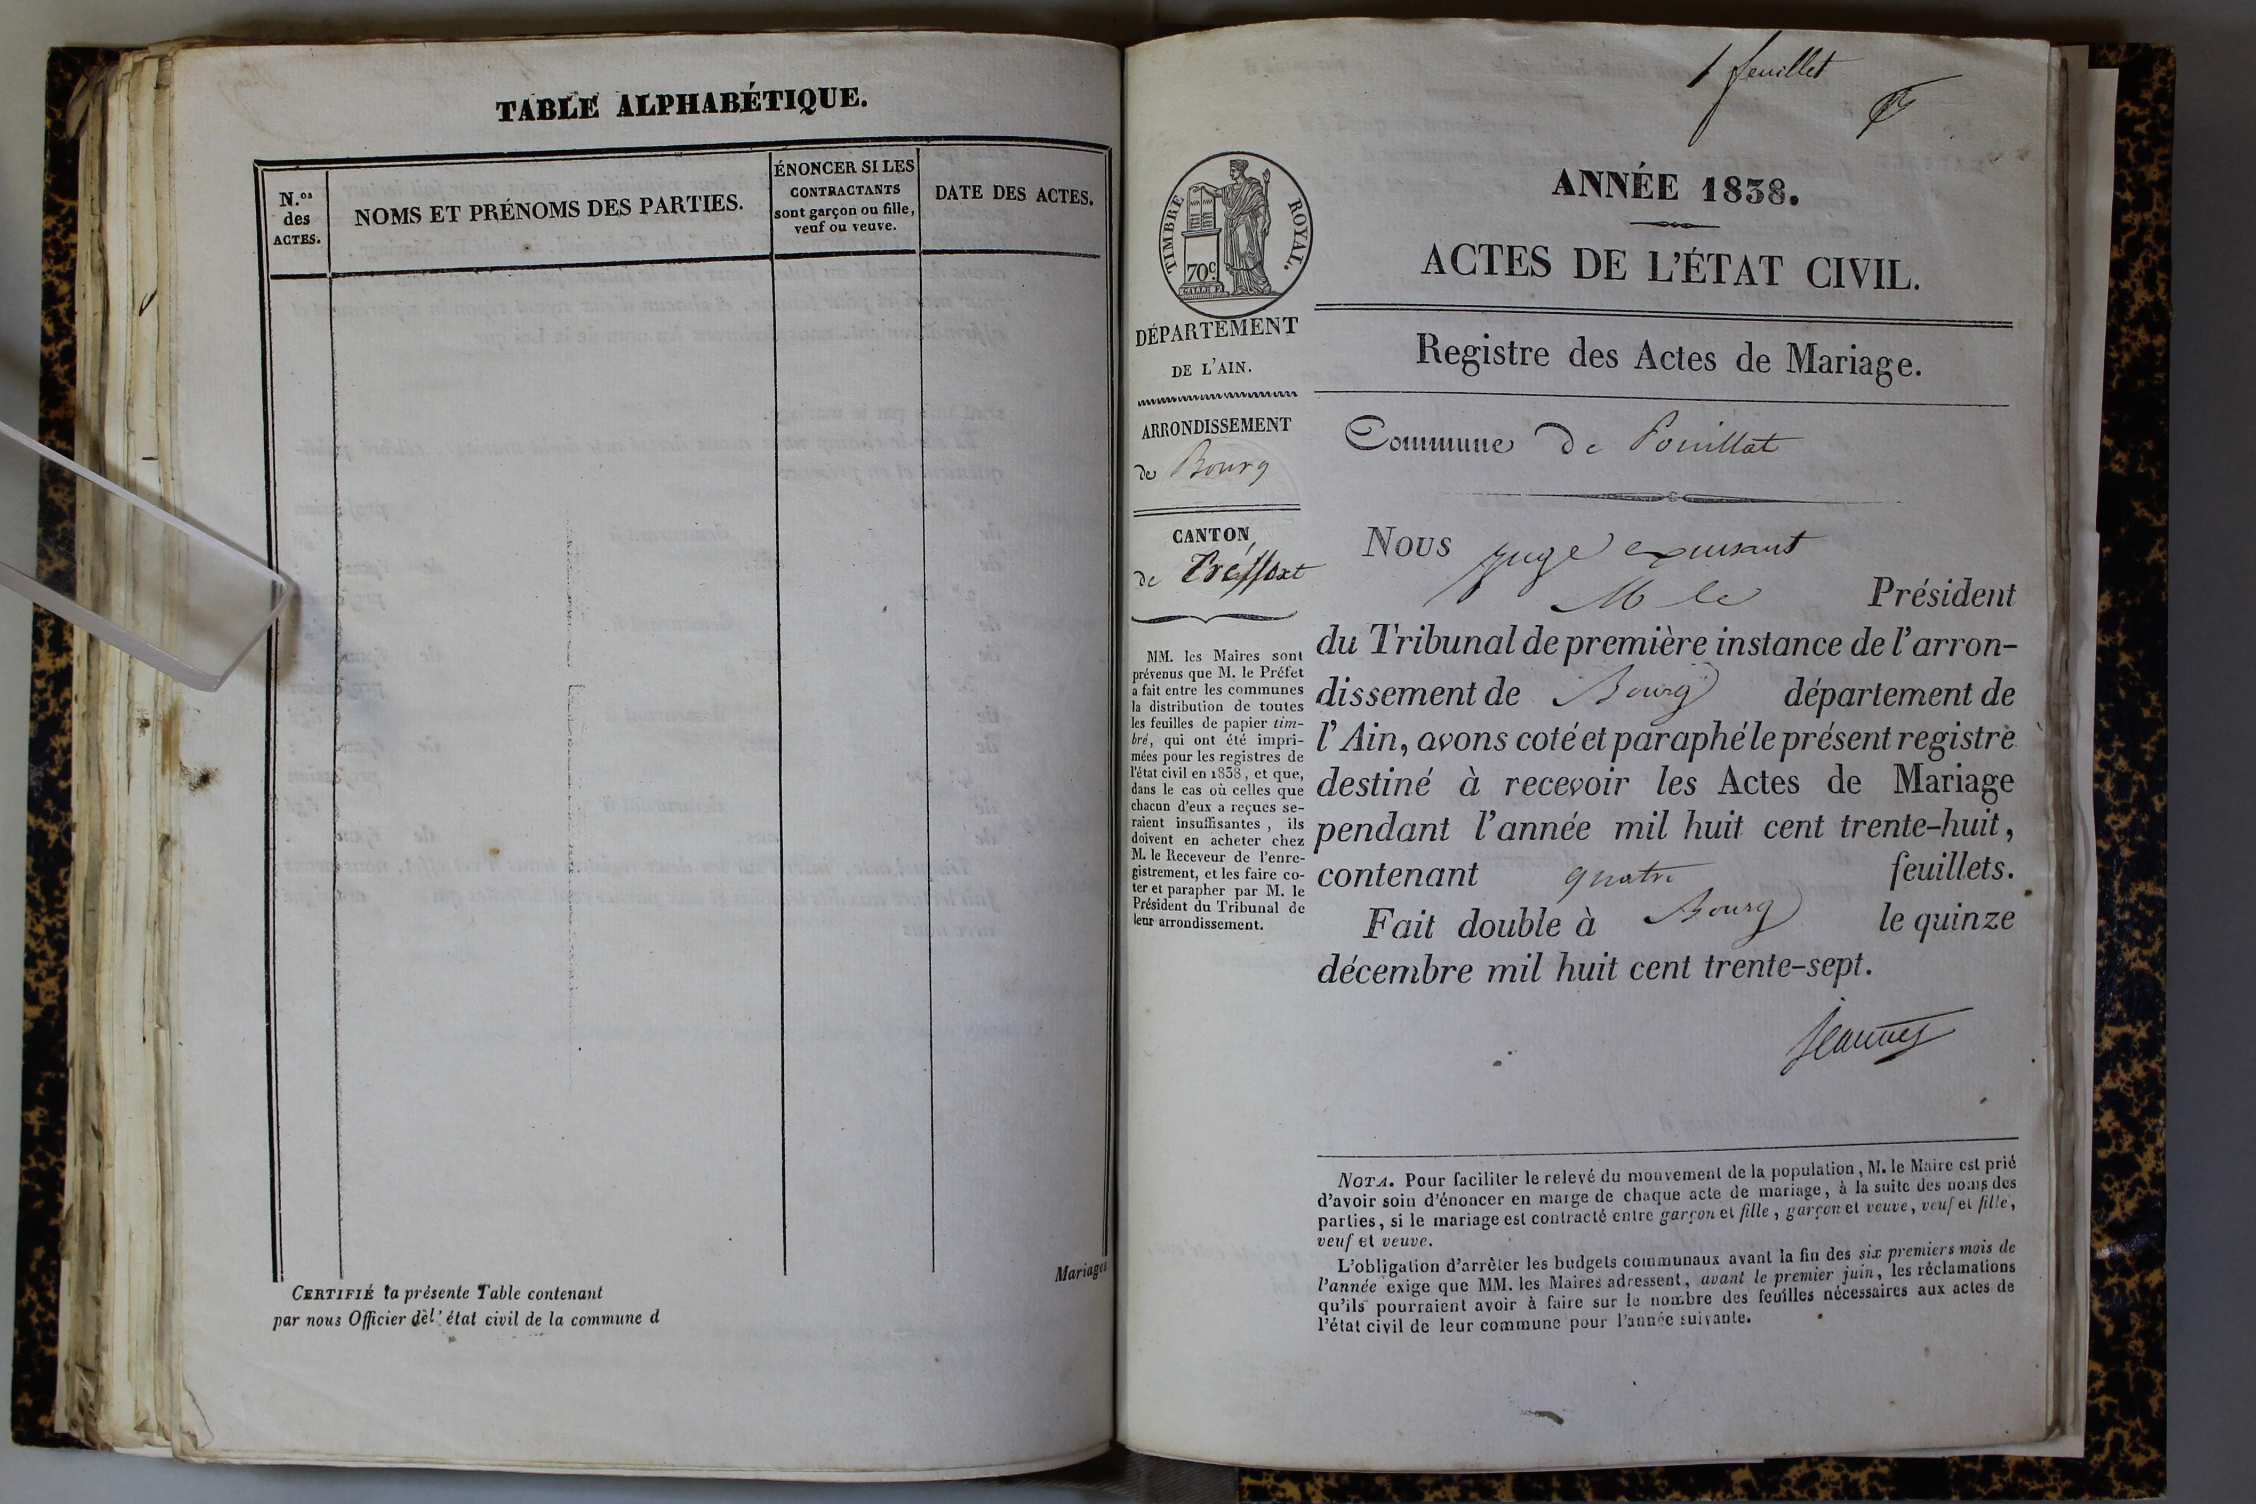 TABLE ALPHABÉTIQUE.
N.os
des
ACTES.
NOMS ET PRÉNOMS DES PARTIES.
ÉNONCER SI LES
CONTRACTANTS
sont garçon ou fille,
veuf ou veuve.
DATE DES ACTES.
Mariages
CERTIFIÉ la présente Table contenant
par nous Officier de l'état civil de la commune d
1 feuillet
TIMBRE ROYAL.
70 c.
DÉPARTEMENT
DE L'AIN.
ARRONDISSEMENT
de Bourg
CANTON
de Tréffort
MM. les Maires sont
prévenus que M. le Préfet
a fait entre les communes
la distribution de toutes
les feuilles de papier tim-
bré, qui ont été impri-
mées pour les registres de
l'état civil en 1838, et que,
dans le cas où celles que
chacun d'eux a reçues se-
raient insuffisantes, ils
doivent en acheter chez
M. le Receveur de l'enre-
gistrement, et les faire co-
ter et parapher par M. le
Président du Tribunal de
leur arrondissement.
ANNÉE 1838.
ACTES DE L'ÉTAT CIVIL.
Registre des Actes de Mariage.
Commune de Pouillat
Nous juge
M le Président
du Tribunal de première instance de l'arron-
dissement de Bourg département de
l'Ain, avons coté et paraphé le présent registre
destiné à recevoir les Actes de Mariage
pendant l'année mil huit cent trente-huit,
contenant quatre feuillets.
Fait double à Bourg le quinze
décembre mil huit cent trente-sept.
NOTA. Pour faciliter le relevé du mouvement de la population, M. le Maire est prié
d'avoir soin d'énoncer en marge de chaque acte de mariage, à la suite des noms des
parties, si le mariage est contracté entre garçon et fille, garçon et veuve, veuf et fille,
veuf et veuve.
L'obligation d'arrêter les budgets communaux avant la fin des six premiers mois de
l'année exige que MM. les Maires adressent, avant le premier juin, les réclamations
qu'ils pourraient avoir à faire sur le nombre des feuilles nécessaires aux actes de
l'état civil de leur commune pour l'année suivante.